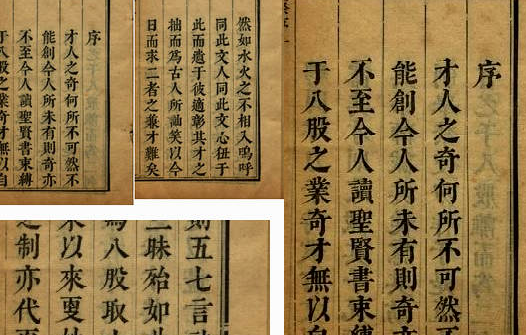 序
才人之奇何所不可然不
能創今人所未有則奇亦
不至今人讀聖賢書束縛
于八股之業奇才無以自
然如水火之不相入嗚呼
同此文人同此文心狃于
此而遺于彼適彰其才之
拙而爲古人所訕笑以今
日而求二者之兼才難矣
序
才人之奇何所不可然
能創今人所未有則奇
不至今人讀聖賢書束縛
于八股之業奇才無以自
則五七言
三昧殆如
爲八股取
以來更
制亦代